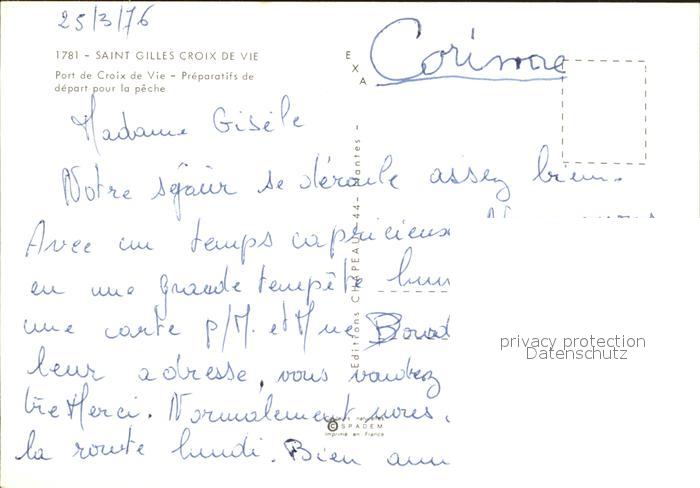 25/3/76
1781 - SAINT GILLES CROIX DE VIE
Port de Croix de Vie - Préparatifs de
départ pour la pêche
EXA
Corinne
Madame Gisèle
Notre séjour se déroule assez bien.
Avec un temps capricieux
en une grande tempête
une carte p/M. et Mme
leur adresse, vous voudrez
Merci. Normalement nous
la route lundi. Bien
Editions CHAPEAU - 44 - Nantes -
SPADEM
imprimé en France
privacy protection
Datenschutz